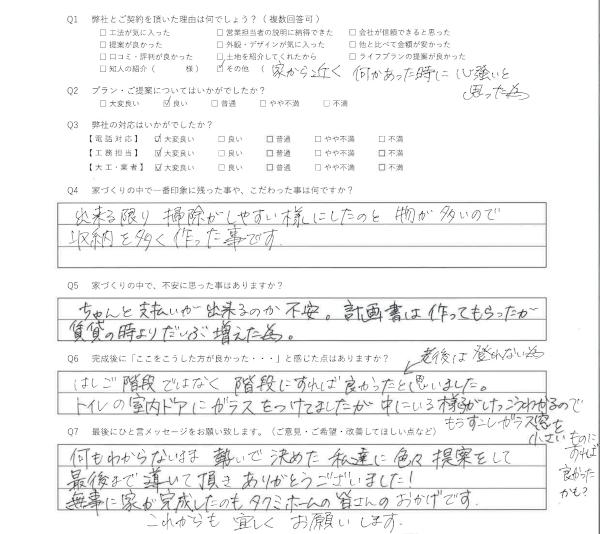 Q1 弊社とご契約を頂いた理由は何でしょう?(複数回答可)
□ 工法が気に入った □ 営業担当者の説明に納得できた □ 会社が信頼できると思った
□ 提案が良かった □ 外観・デザインが気に入った □ 他と比べて金額が安かった
□ 口コミ・評判が良かった □ 土地を紹介してくれたから □ ライフプランの提案が良かった
□ 知人の紹介( 様) ☑ その他 ( 家から近く 何かあった時に 心強いと
思った為
Q2 プラン・ご提案についてはいかがでしたか?
□ 大変良い ☑ 良い □ 普通 □ やや不満 □ 不満
Q3 弊社の対応はいかがでしたか?
【電話対応】 ☑ 大変良い □ 良い □ 普通 □ やや不満 □ 不満
【工務担当】 ☑ 大変良い □ 良い □ 普通 □ やや不満 □ 不満
【大工・業者】 ☑ 大変良い □ 良い □ 普通 □ やや不満 □ 不満
Q4 家づくりの中で一番印象に残った事や、こだわった事は何ですか?
出来る限り 掃除がしやすい様にしたのと 物が多いので
収納を多く作った事です.
Q5 家づくりの中で、不安に思った事はありますか?
ちゃんと支払いが出来るのか不安。計画書は作ってもらったが
賃貸の時よりだいぶ増えた為。
Q6 完成後に「ここをこうした方が良かった・・・」と感じた点はありますか?
老後は登れない為
はしご階段ではなく 階段にすれば良かったと思いました。
トイレの室内ドアにガラスをつけてましたが中にいる様子がけっこうわかるので
もうすこしガラス窓を
小さいものに
すれば
良かった
かも?
Q7 最後にひと言メッセージをお願い致します。(ご意見・ご希望・改善してほしい点など)
何もわからないまま 勢いで決めた私達に色々提案をして
最後まで導いて頂きありがとうございました!
無事に家が完成したのもタクミホームの皆さんのおかげです.
これからも 宜しく お願いします.